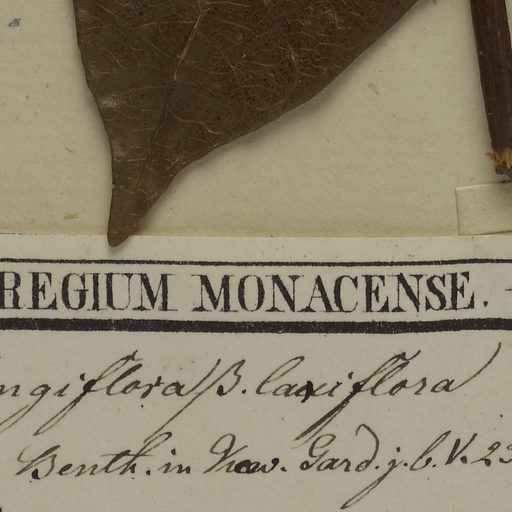 REGIUM MONACENSE.
ngiflora β. laxiflora
Benth. in Kew. Gard. j. b. V. 23